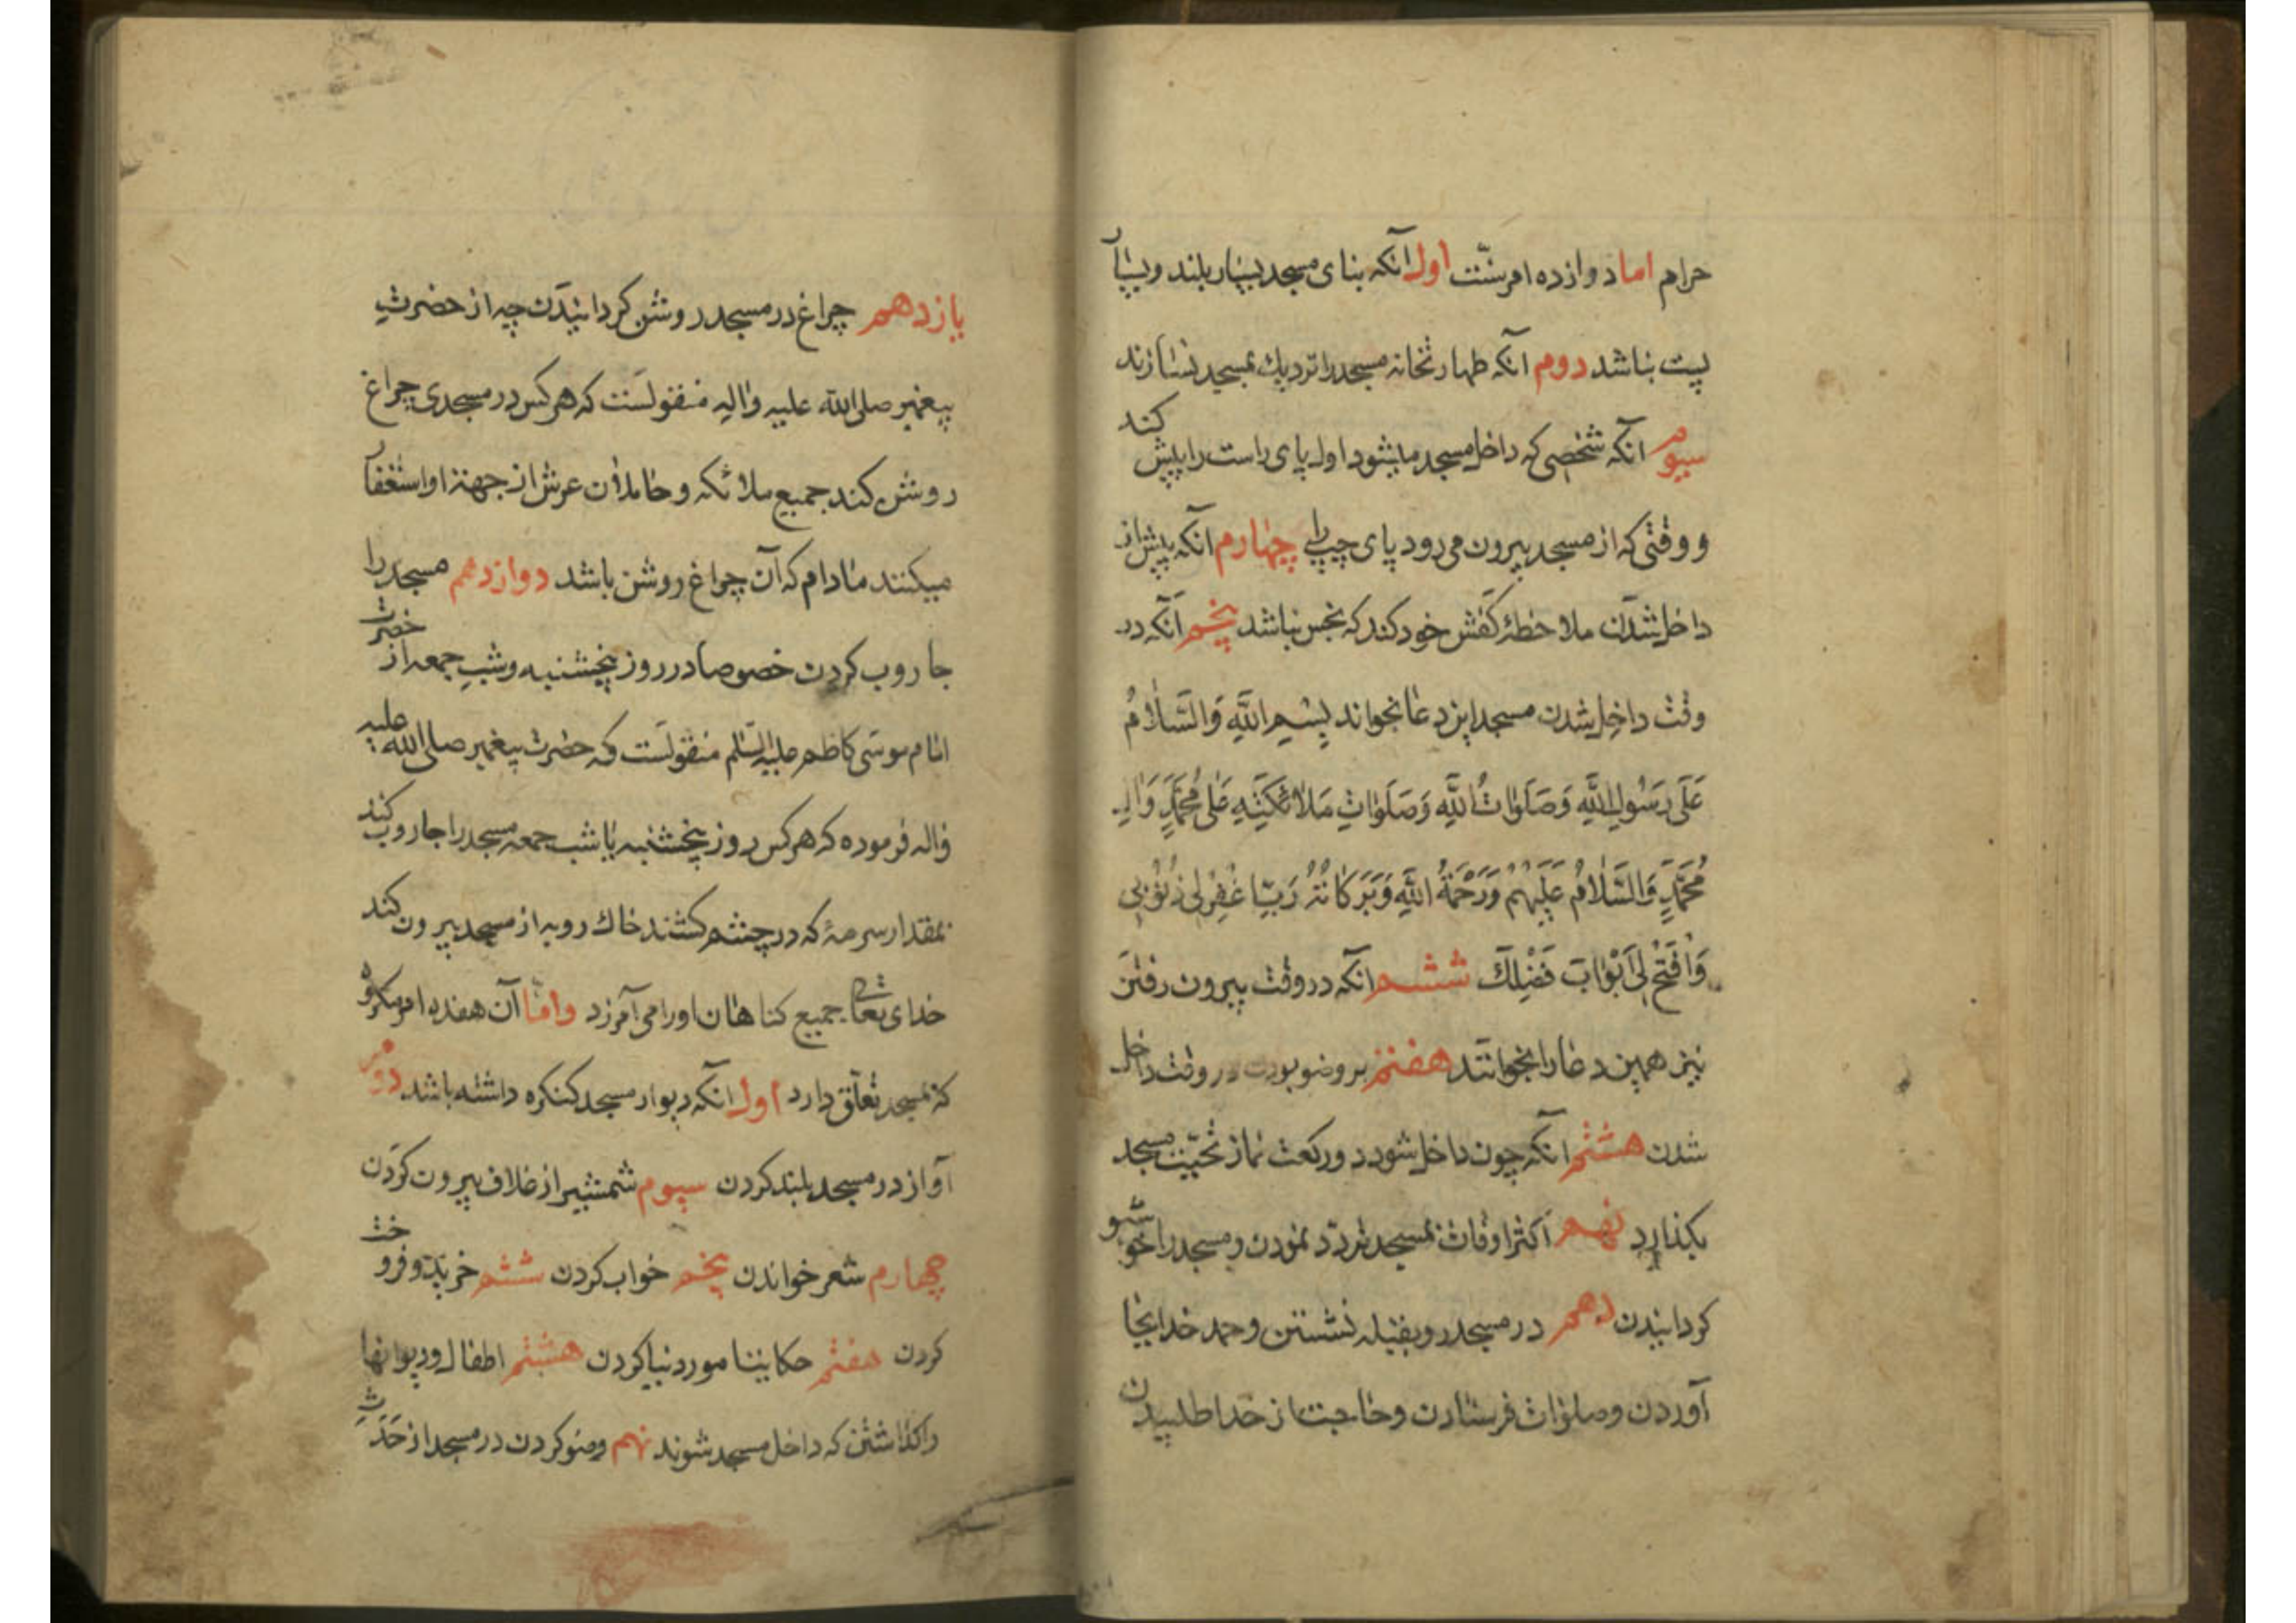 حرام اما دوازده امر سنّت اول آنکه بنای مسجد بسیار بلند و بسیار
پست نباشد دوم آنکه طهارتخانه مسجد را نزدیک بمسجد نسازند
سیوم آنکه شخصی که داخل مسجد میشود اول پای راست را پیش کند
و وقتی که از مسجد بیرون می‌رود پای چپ را چهارم آنکه پیش از
داخل شدن ملاحظهٔ کفش خود کند که نجس نباشد پنجم آنکه در
وقت داخل شدن مسجد این دعا بخواند بِسْمِ اللَّهِ وَالسَّلَامُ
عَلَى رَسُولِ اللَّهِ وَصَلَوَاتُ اللَّهِ وَصَلَوَاتِ مَلَائِكَتِهِ عَلَى مُحَمَّدٍ وَالِ
مُحَمَّدٍ وَالسَّلَامُ عَلَيْهِمْ وَرَحْمَةُ اللَّهِ وَبَرَكَاتُهُ رَبِّ اغْفِرْ لِي ذُنُوبِي
وَافْتَحْ لِي أَبْوَابَ فَضْلِكَ ششم آنکه در وقت بیرون رفتن
نیز همین دعا را بخوانند هفتم بر وضو بودن در وقت داخل
شدن هشتم آنکه چون داخل شود دو رکعت نماز تحیّت مسجد
بکذارد نهم اکثر اوقات بمسجد تردّد نمودن و مسجد را خوشبو
کردانیدن دهم در مسجد رو بقبله نشستن و حمد خدا بجا
آوردن و صلوات فرستادن و حاجت از خدا طلبیدن
یازدهم چراغ در مسجد روشن کردانیدن چه از حضرت
پیغمبر صلی الله علیه واله منقولست که هرکس در مسجدی چراغ
روشن کند جمیع ملائکه و حاملان عرش از جهة او استغفار
میکنند مادام که آن چراغ روشن باشد دوازدهم مسجد را
جاروب کردن خصوصا در روز پنجشنبه و شب جمعه از حضرت
امام موسی کاظم علیه السّلم منقولست که حضرت پیغمبر صلی الله علیه
واله فرموده که هرکس روز پنجشنبه یا شب جمعه مسجد را جاروب کند
بمقدار سرمهٔ که در چشم کشند خاک روبه از مسجد بیرون کند
خدای تعالی جمیع کناهان او را می‌آمرزد وامّا آن هفده امر مکروه
که بمسجد تعلّق دارد اول آنکه دیوار مسجد کنکره داشته باشد دوم
آواز در مسجد بلند کردن سیوم شمشیر از غلاف بیرون کردن
چهارم شعر خواندن پنجم خواب کردن ششم خرید و فروخت
کردن هفتم حکایت امور دنیا کردن هشتم اطفال و دیوانها
را کذاشتن که داخل مسجد شوند نهم وضو کردن در مسجد از حَدَثِ